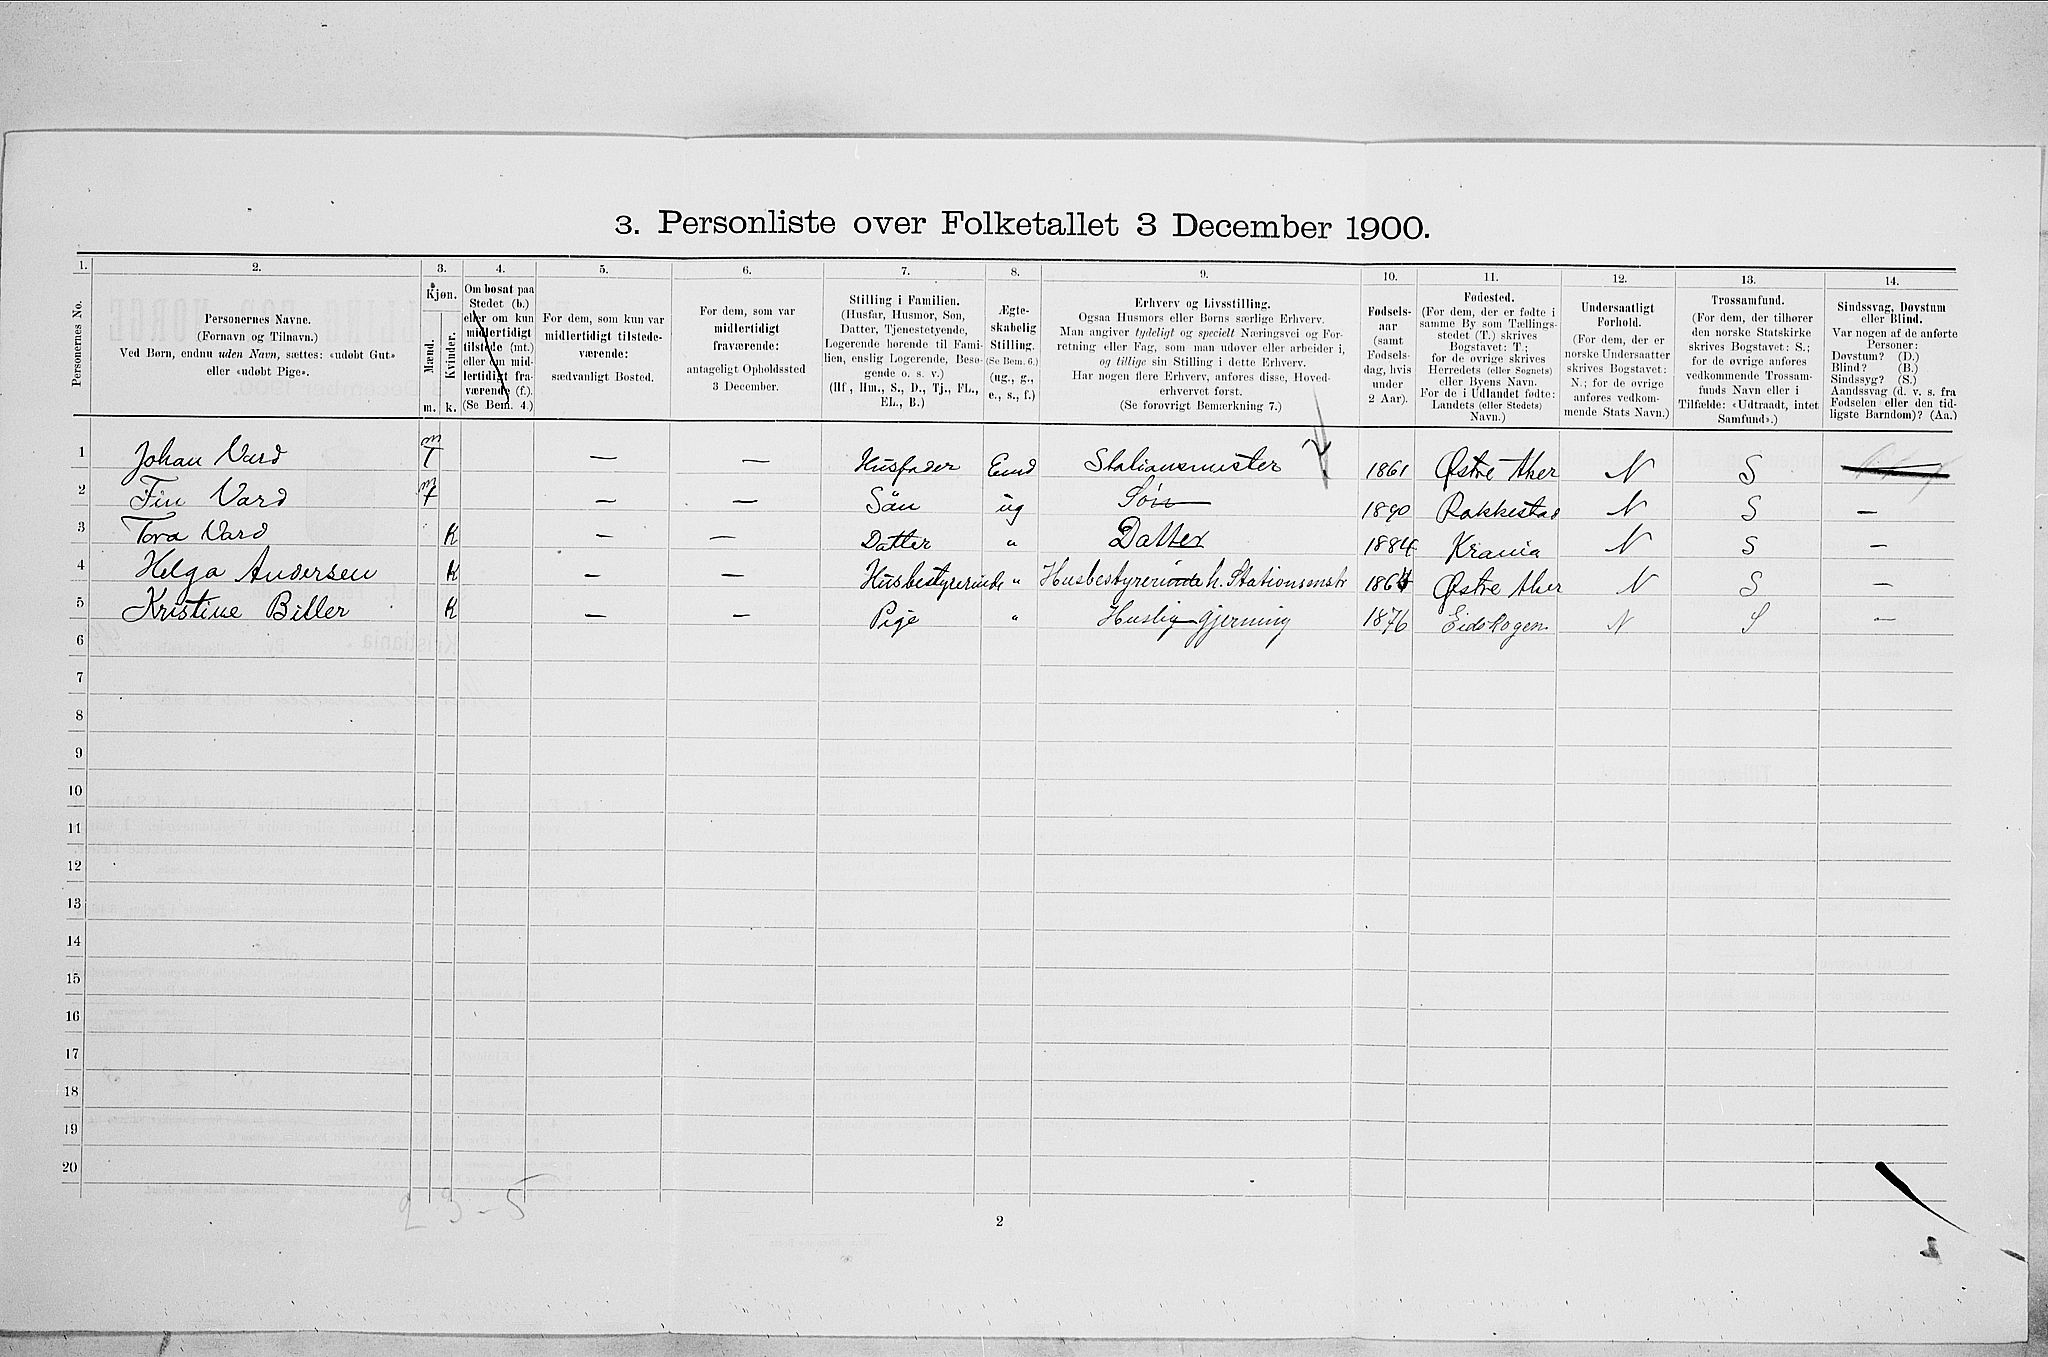 3. Personliste over Folketallet 3 December 1900.
1. 2. 3. 4. 5. 6. 7. 8. 9. 10. 11. 12. 13. 14.
Personernes No.
Personernes Navne.
(Fornavn og Tilnavn.)
Ved Børn, endnu uden Navn, sættes: «udøbt Gut»
eller «udøbt Pige».
Kjøn.
Mænd.
Kvinder.
m. k.
Om bosat paa
Stedet (b.)
eller om kun
midlertidigt
tilstede (mt.)
eller om mid-
lertidigt fra-
værende (f.)
(Se Bem. 4.)
For dem, som kun var
midlertidigt tilstede-
værende:
sædvanligt Bosted.
For dem, som var
midlertidigt
fraværende:
antageligt Opholdssted
3 December.
Stilling i Familien.
(Husfar, Husmor, Søn,
Datter, Tjenestetyende,
Logerende hørende til Fami-
lien, enslig Logerende, Besø-
gende o. s. v.)
(Hf., Hm., S., D., Tj., FL.,
EL., B.)
Ægte-
skabelig
Stilling.
(Se Bem. 6.)
(ug., g.,
e., s., f.)
Erhverv og Livsstilling.
Ogsaa Husmors eller Børns særlige Erhverv.
Man angiver tydeligt og specielt Næringsvei og For-
retning eller Fag, som man udøver eller arbeider i,
og tillige sin Stilling i dette Erhverv.
Har nogen flere Erhverv, anføres disse, Hoved-
erhvervet først.
(Se forøvrigt Bemærkning 7.)
Fødsels-
aar
(samt
Fødsels-
dag, hvis
under
2 Aar).
Fødested.
(For dem, der er fødte i
samme By som Tællings-
stedet (T.) skrives
Bogstavet: T.;
for de øvrige skrives
Herredets (eller Sognets)
eller Byens Navn.
For de i Udlandet fødte:
Landets (eller Stedets)
Navn.)
Undersaatligt
Forhold.
(For dem, der er
norske Undersaatter
skrives Bogstavet:
N.; for de øvrige
anføres vedkom-
mende Stats Navn.)
Trossamfund.
(For dem, der tilhører
den norske Statskirke
skrives Bogstavet: S.;
for de øvrige anføres
vedkommende Trossam-
funds Navn eller i
Tilfælde: «Udtraadt, intet
Samfund».)
Sindssvag, Døvstum
eller Blind.
Var nogen af de anførte
Personer:
Døvstum? (D.)
Blind? (B.)
Sindssyg? (S.)
Aandssvag (d. v. s. fra
Fødselen eller den tid-
ligste Barndom)? (Aa.)
1 Johan Vard m — — Husfader End Stationsmester 1861 Østre Aker N S
2 Fin Vard m — — Sön ug Søn 1890 Rakkestad N S —
3 Tora Vard K — — Datter " Datter 1884 Krania N S —
4 Helga Andersen K — — Husbestyrerinde " Husbestyrerinde h. Stationsmstr Østre Aker N S —
5 Kristine Biller K — — Pige " Huslig gjerning 1876 Eidskogen N S —
6
7
8
9
10
11
12
13
14
15
16
17
18
19
20
2 3 - 5
2